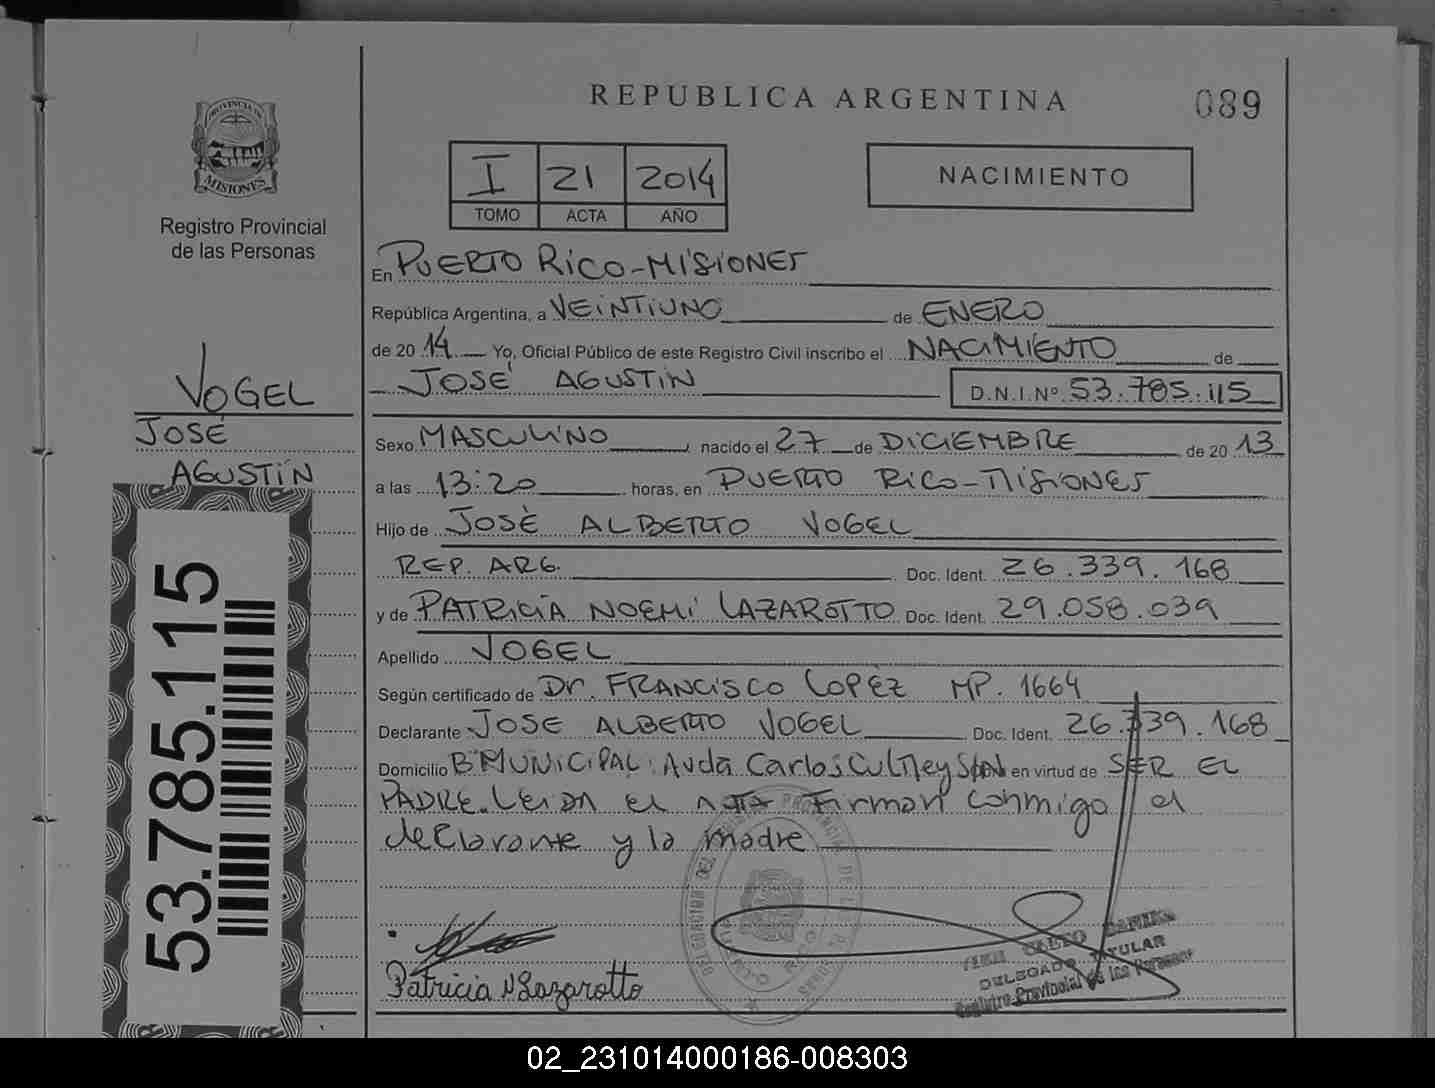 REPUBLICA ARGENTINA
089
PROVINCIA DE
MISIONES
Registro Provincial
de las Personas
I 21 2014
TOMO ACTA AÑO
NACIMIENTO
En PUERTO RICO-MISIONES
República Argentina, a VEINTIUNO de ENERO
de 20 14 Yo, Oficial Público de este Registro Civil inscribo el NACIMIENTO de
JOSÉ AGUSTIN
D.N.I.Nº 53.785.115
VOGEL
JOSÉ
AGUSTÍN
53.785.115
Sexo MASCULINO, nacido el 27 de DICIEMBRE de 20 13
a las 13:20 horas, en PUERTO RICO-MISIONES
Hijo de JOSÉ ALBERTO VOGEL
REP. ARG. Doc. Ident. 26.339.168
y de PATRICIA NOEMI LAZAROTTO Doc. Ident. 29.058.039
Apellido VOGEL
Según certificado de Dr. FRANCISCO LOPÉZ MP. 1664
Declarante JOSE ALBERTO VOGEL Doc. Ident. 26.339.168
Domicilio Bº MUNICIPAL: Avda Carlos Culmey S/N en virtud de SER EL
PADRE. Leida el acta Firman conmigo el
declarante y la madre
Patricia N Lazarotto
DELEGADO TITULAR
Registro Provincial de las Personas
02_231014000186-008303